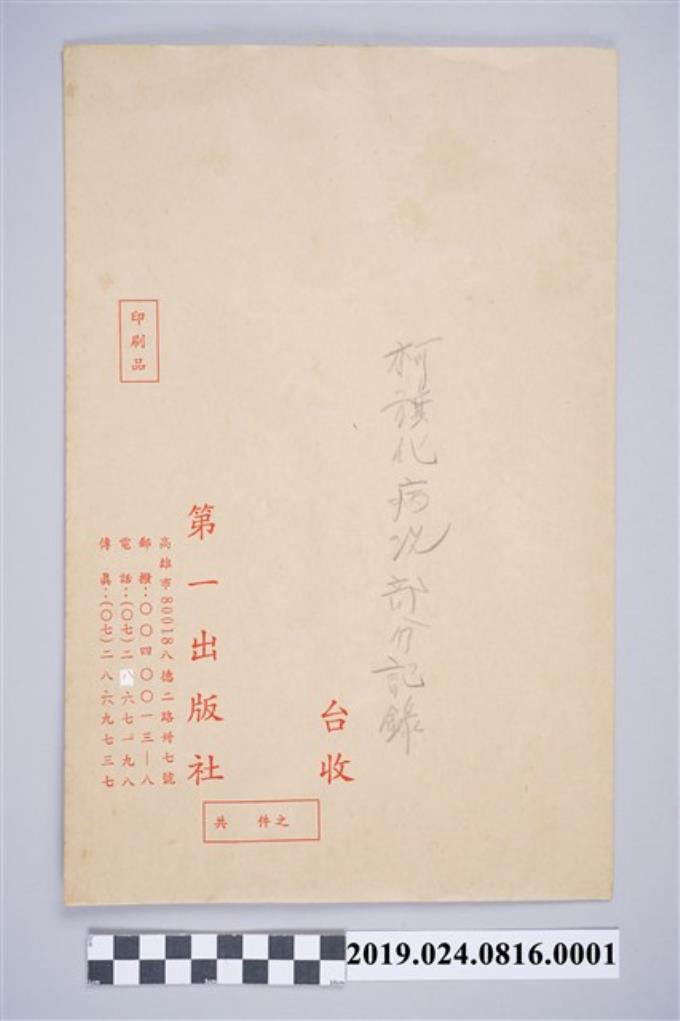 柯旗化病况部分記錄
台收
第一出版社
高雄市80018八德二路卅七號
郵撥：〇〇四〇〇一三—八
電話：(〇七)二八六七一九八
傳眞：(〇七)二八六九七三七
印刷品
共　件之
2019.024.0816.0001